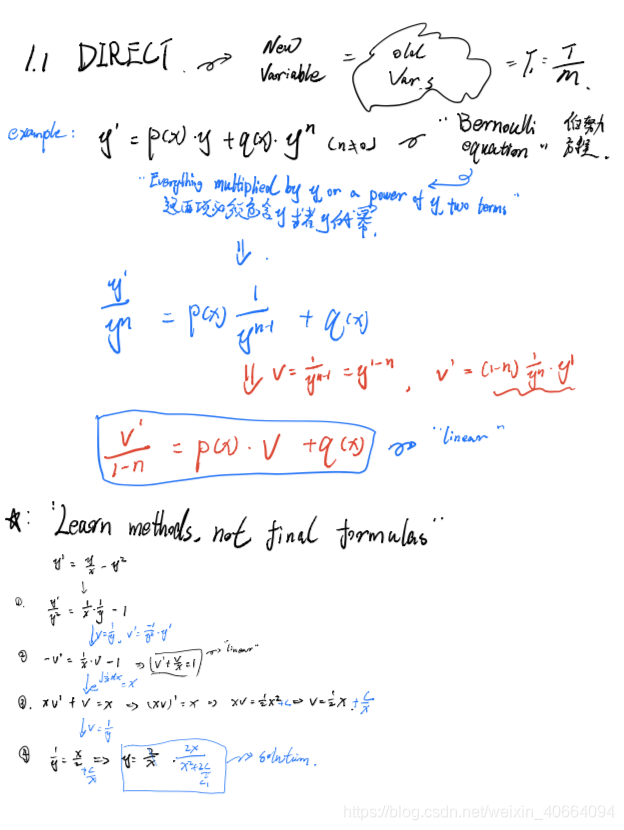 1.1 DIRECT. → New Variable = old Var.s = T₁ = T/m.
example: y' = p(x)·y + q(x)·yⁿ (n≠0) "Bernoulli equation" 伯努力方程.
"Everything multiplied by y or a power of y, two terms"
这两项必须包含y或者y的幂.
⇓
y'/yⁿ = p(x) 1/yⁿ⁻¹ + q(x)
⇓ V = 1/yⁿ⁻¹ = y¹⁻ⁿ, V' = (1-n) 1/yⁿ · y'
V'/1-n = p(x)·V + q(x) → "linear"
☆: "Learn methods, not final formulas"
y' = y/x - y²
↓
①. y'/y² = 1/x · 1/y - 1
↓ V = 1/y, V' = -1/y² · y'
② -V' = 1/x · V - 1 ⇒ V' + V/x = 1 → "linear"
↓ e^∫1/x dx = x
③. xV' + V = x ⇒ (xV)' = x ⇒ xV = 1/2 x² + C ⇒ V = 1/2 x + C/x
↓ V = 1/y
④ 1/y = x/2 + C/x ⇒ y = 2/x · 2x/x²+2C → solution.
C₁
https://blog.csdn.net/weixin_40664094